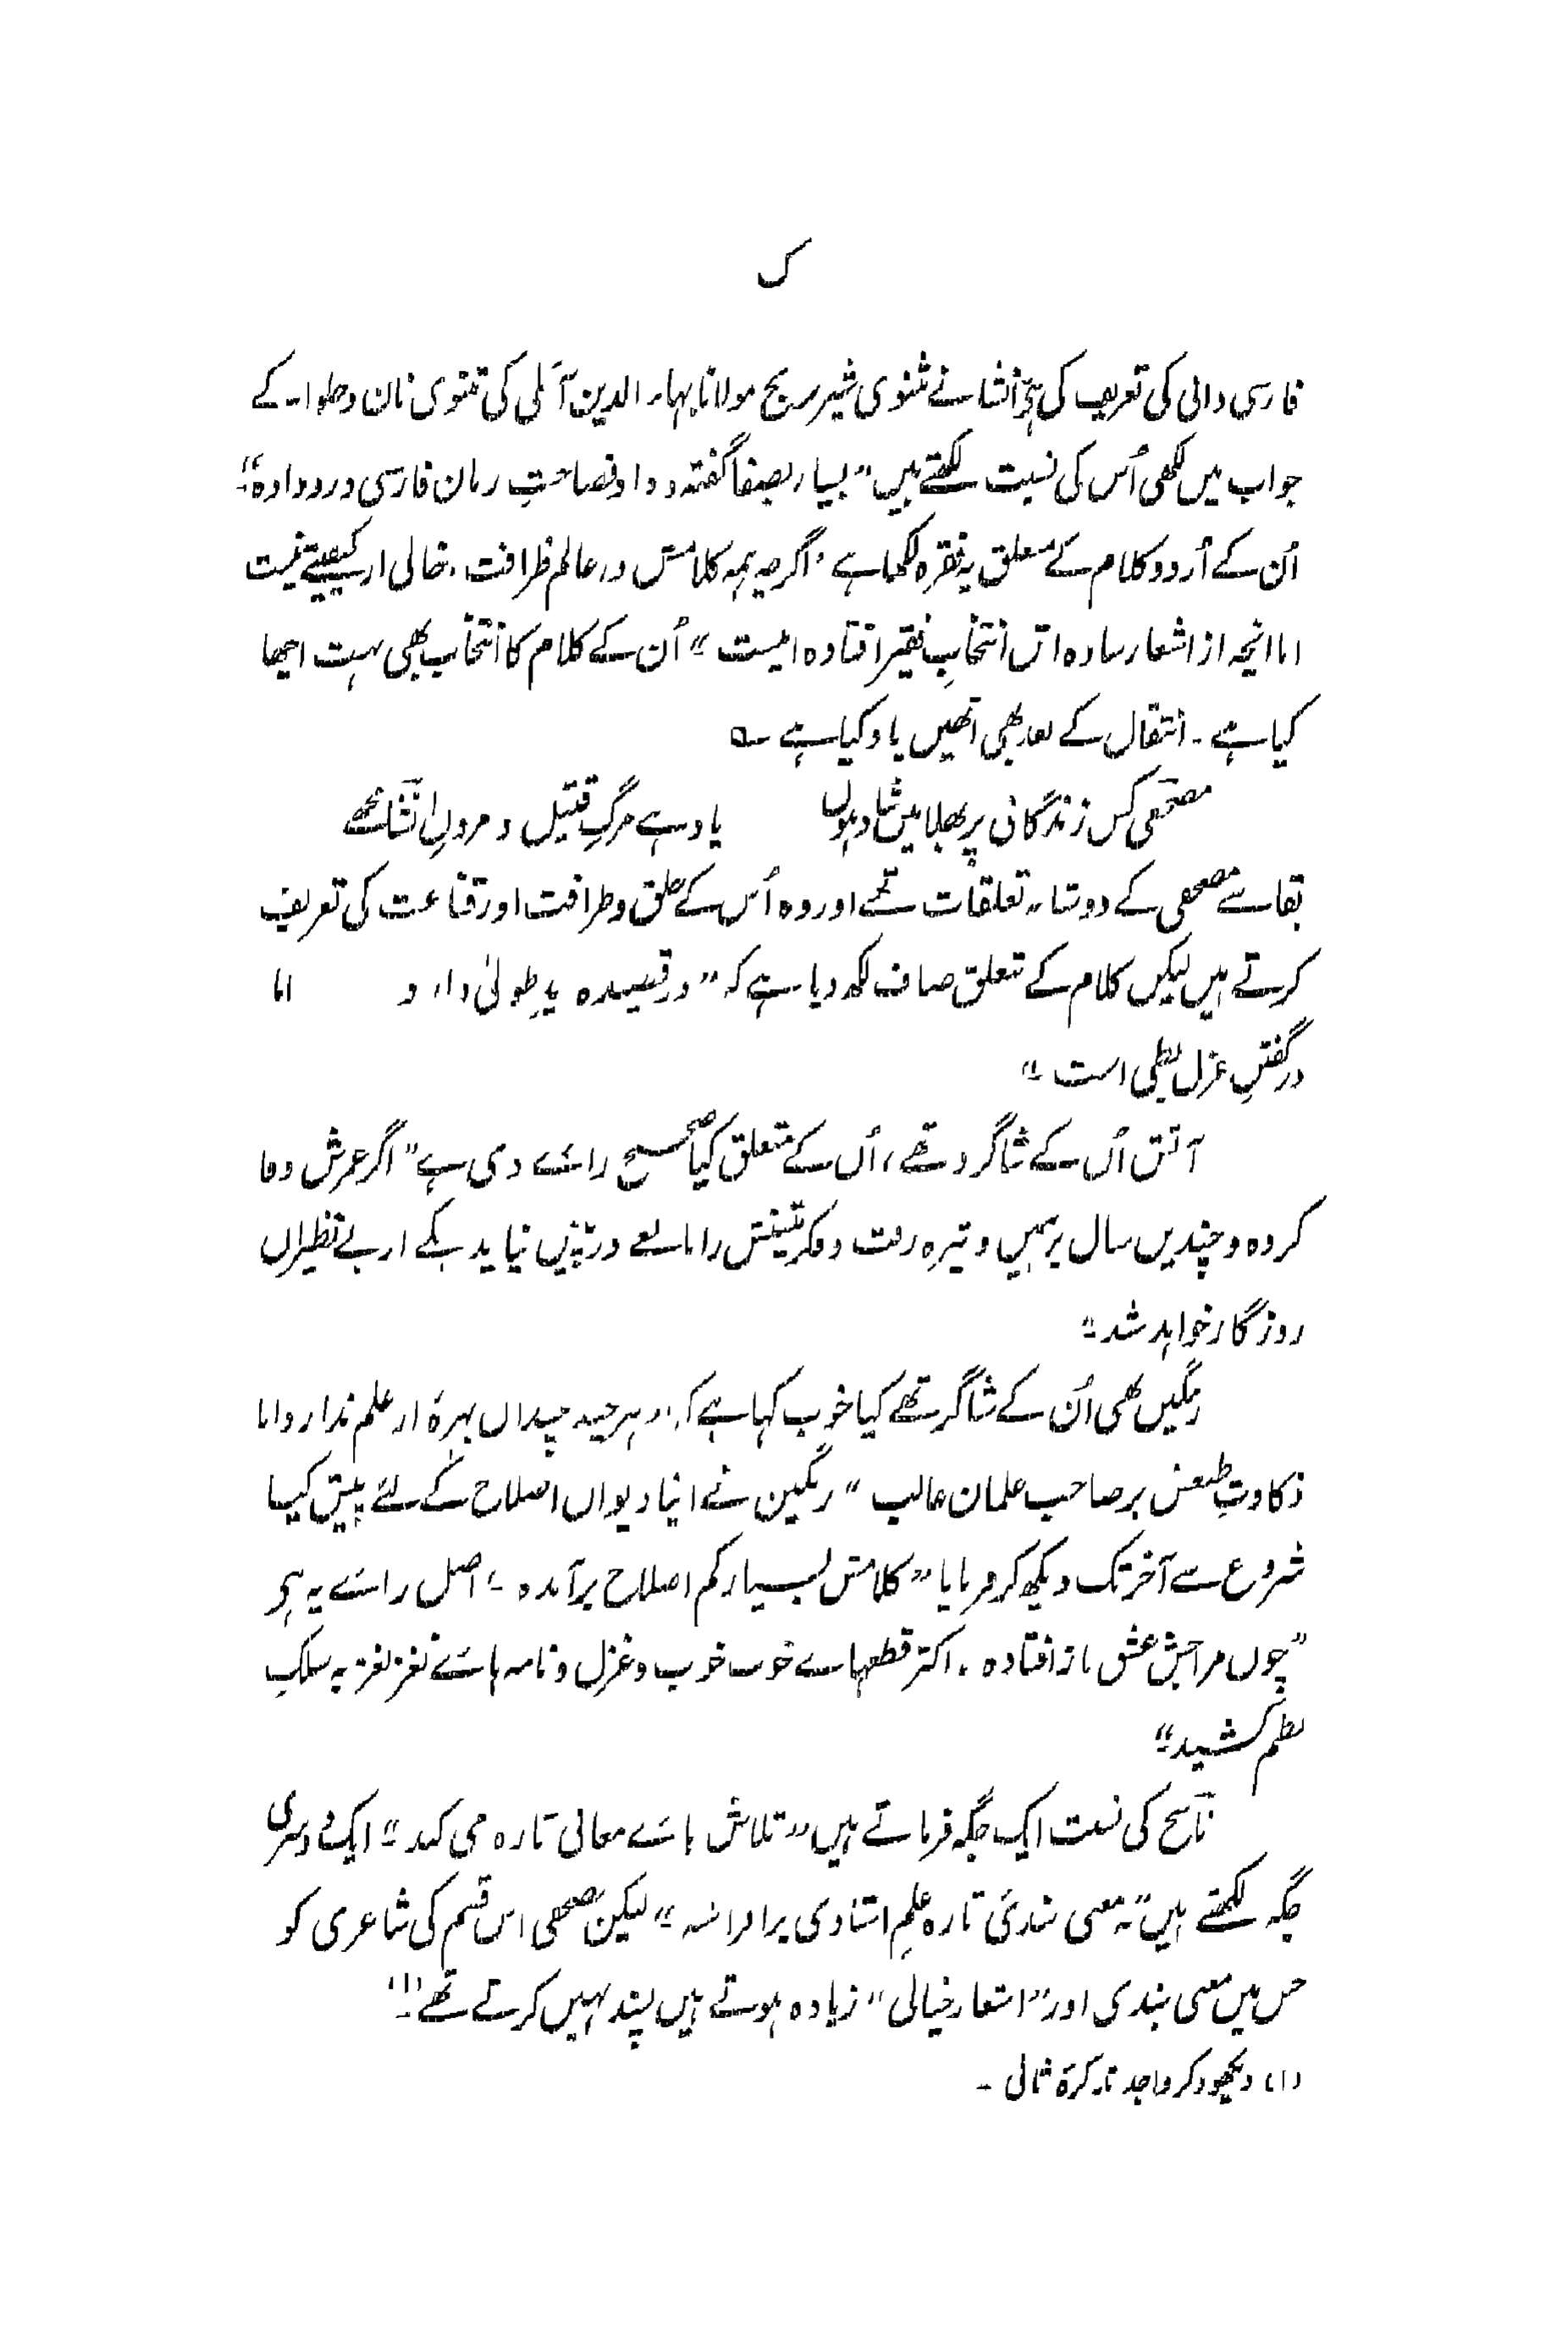 ک
فارسی دانی کی تعریف کی ہی انشا نے مثنوی شیر برنج مولانا بہاء الدین آملی کی مثنوی نان و حلوا۔ کے
جواب میں لکھی اُس کی نسبت لکھتے ہیں "بسیار بصفا گفته و داد فصاحتِ زبان فارسی درو داده"۔
اُن کے اُردو کلام کے متعلق یہ فقرہ لکھا ہے "اگرچہ ہمہ کلامش در عالم ظرافت، خالی از کیفیتے نیست
اما انچہ از اشعار ساده اش انتخابِ فقیر افتاده اینست" اُن کے کلام کا انتخاب بھی بہت اچھا
کیا ہے۔ انتقال کے بعد بھی انھیں یاد کیا ہے ؎
مصحفی کس زندگانی پر بھلا میں شاد ہوں یاد ہے مرگِ قتیل و مردنِ انشا مجھے
بقا سے مصحفی کے دوستانہ تعلقات تھے اور وہ اُس کے خلق و ظرافت اور قناعت کی تعریف
کرتے ہیں لیکن کلام کے متعلق صاف لکھ دیا ہے کہ "در قصیدہ یدِ طولیٰ دارد و اما
در گفتنِ غزل بطی است"۔
آتش اُن کے شاگرد تھے، اُن کے متعلق کیا صحیح رائے دی ہے "اگر عمرش وفا
کرده و چندیں سال بر ہمیں وتیرہ رفت و فکر متینش را مانعے در پیش نیاید یکے از بے نظیران
روزگار خواہد شد"۔
رنگیں بھی اُن کے شاگر تھے کیا خوب کہا ہے کہ "ہر چند چنداں بہرۂ از علم ندارد اما
ذکاوتِ طبعش بر صاحب علمان غالب" رنگین نے اپنا دیوان اصلاح کے لئے پیش کیا
شروع سے آخر تک دیکھ کر فرمایا "کلامش بسیار کم اصلاح برآمده"۔ اصل رائے یہ ہی
"چوں مزاجش عشق باز افتاده، اکثر قطعہائے خوب خوب و غزل و نامہ ہائے نغز نغز بہ سلک
نظم کشید"۔
ناسخ کی نسبت ایک جگہ فرماتے ہیں "تلاش ہائے معانی تازه می کند"۔ ایک دوسری
جگہ لکھتے ہیں "بہ معنی بندیٔ تازه علمِ استادی برافراشتہ"۔ لیکن مصحفی اس قسم کی شاعری کو
جس میں معنی بندی اور "اشعار خیالی" زیادہ ہوتے ہیں پسند نہیں کرتے تھے۔(۱)
(۱) دیکھو ذکر واجد تذکرۂ ثانی ۔